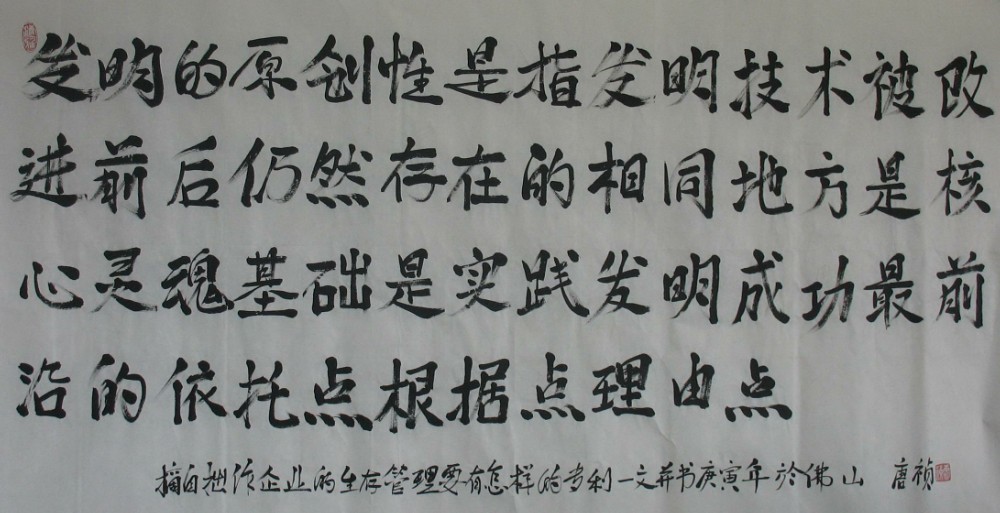 发明的原创性是指发明技术被改
进前后仍然存在的相同地方是核
心灵魂基础是实践发明成功最前
沿的依托点根据点理由点
摘自拙作企业的生存管理要有怎样的专利一文并书庚寅年於佛山 唐祯